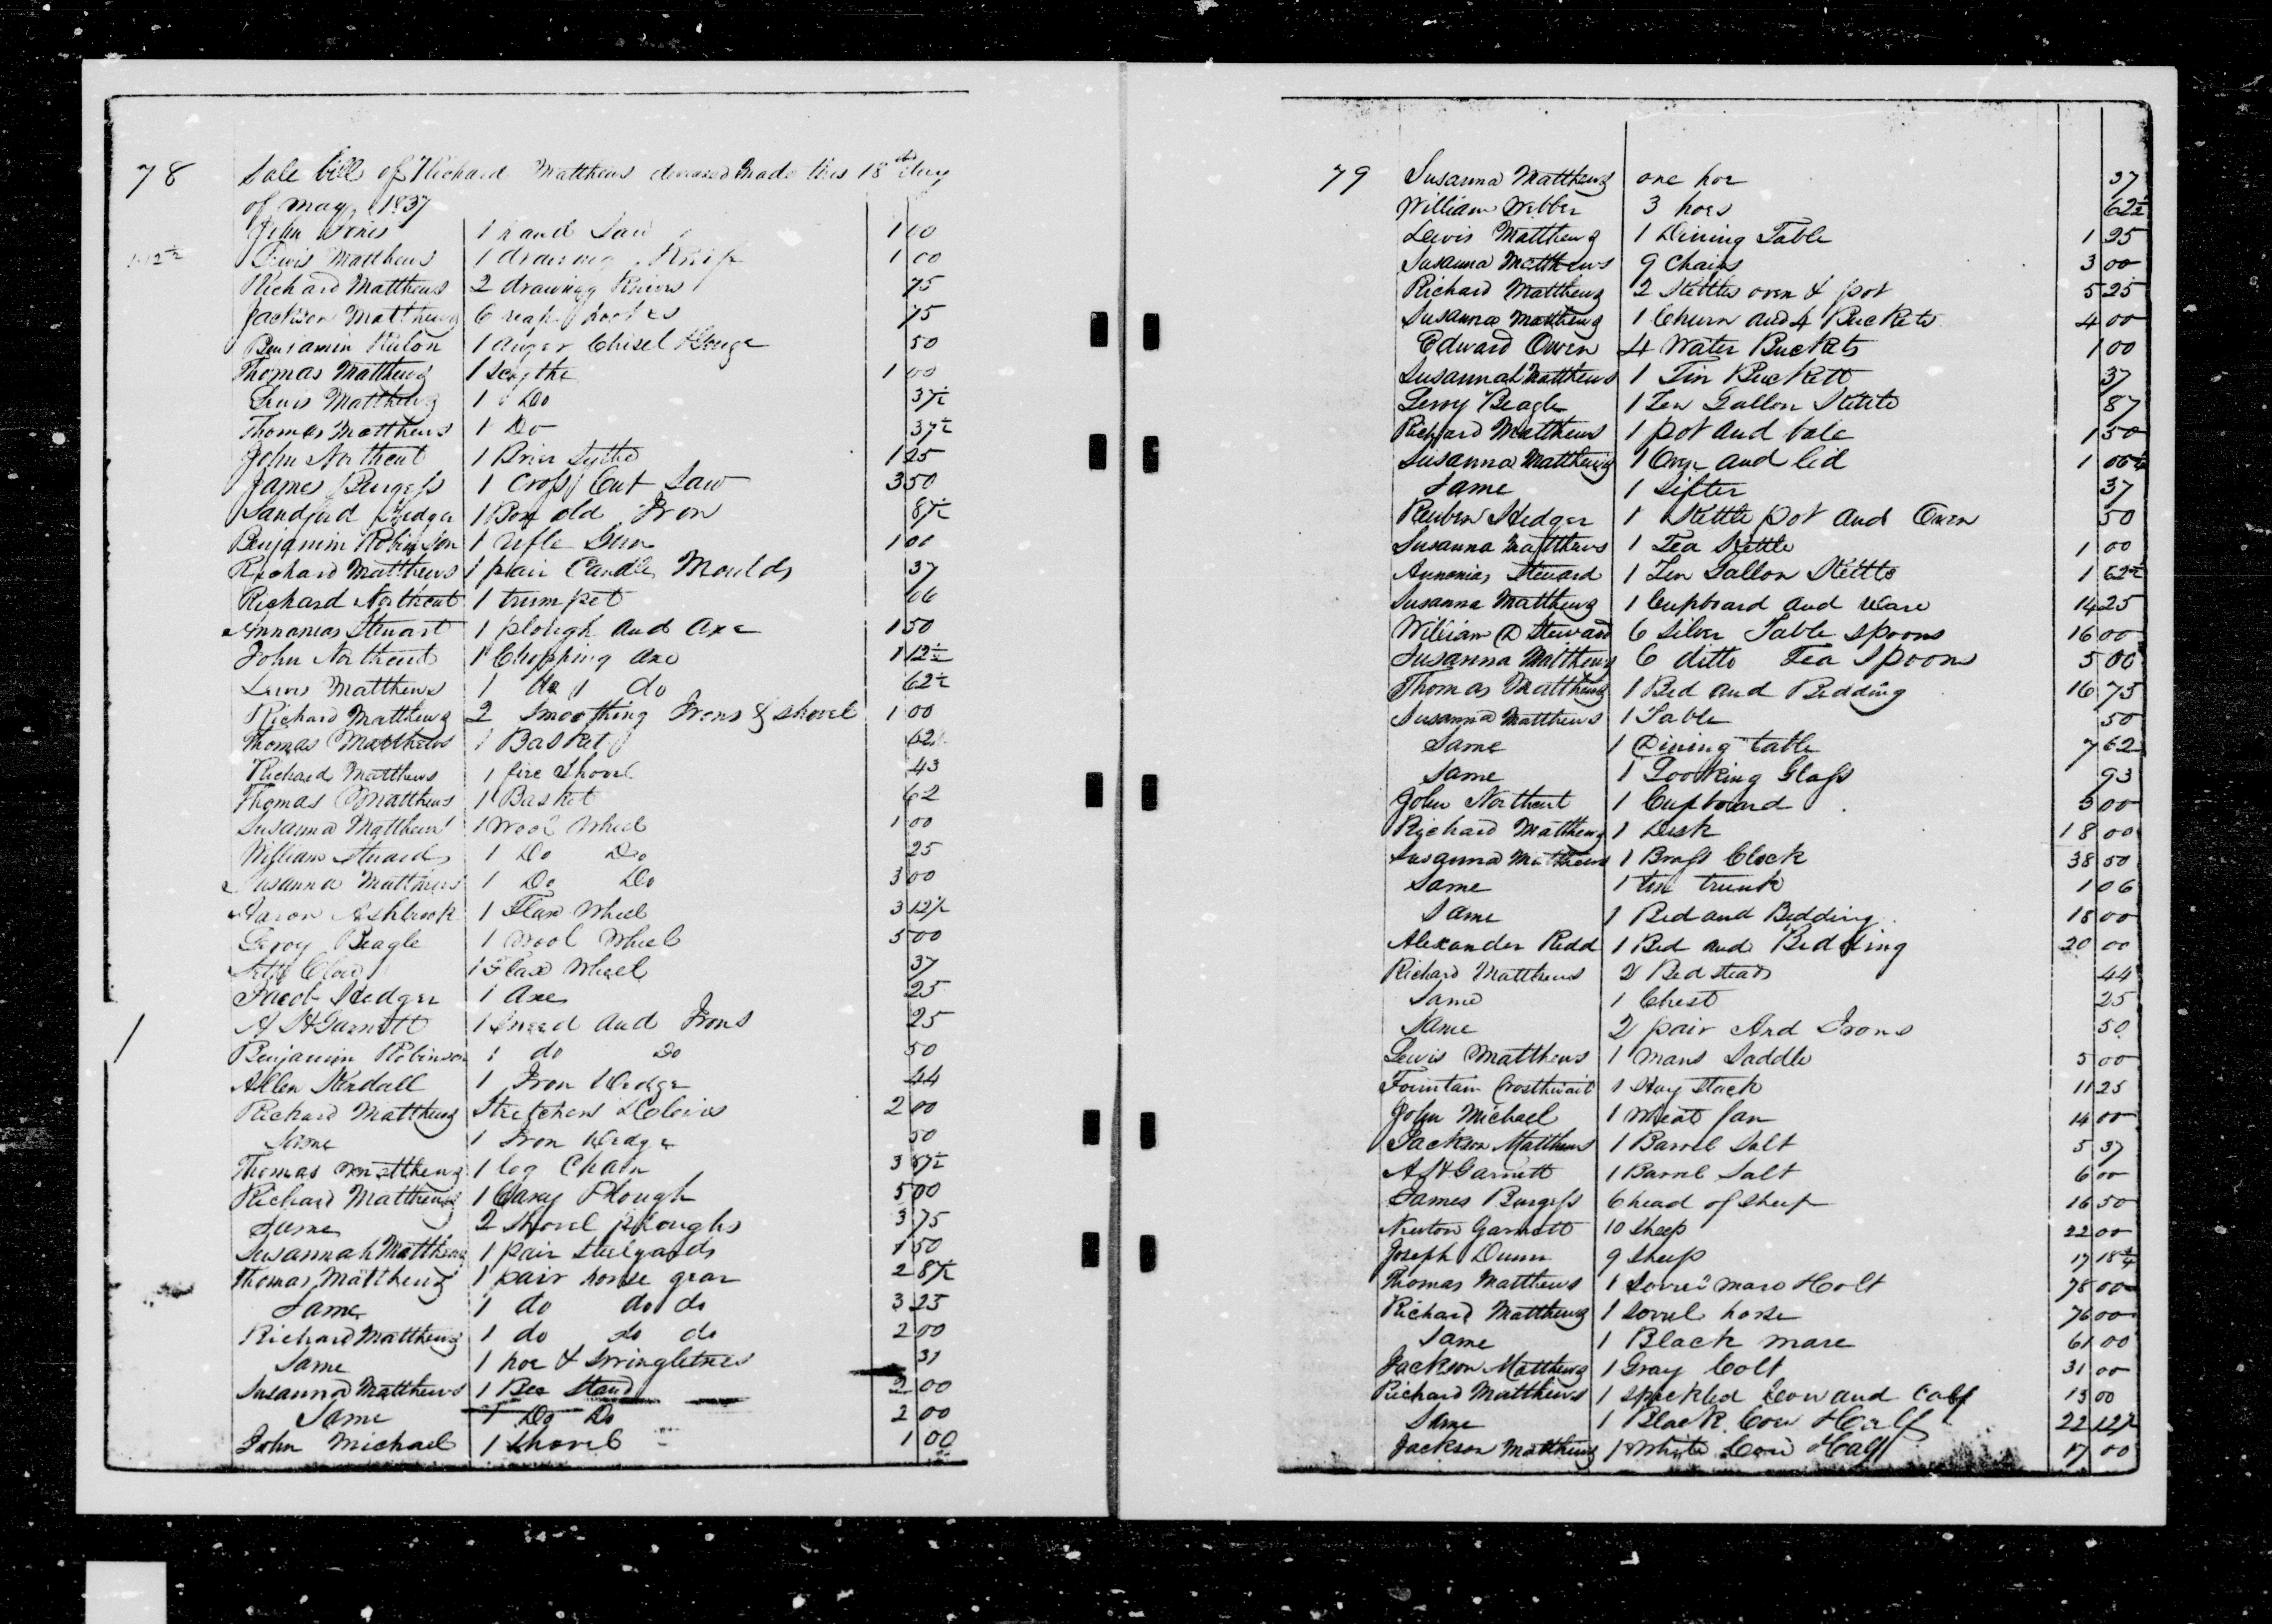 78 Sale bill of Richard Matthews deceased made this 18th day
of may 1837
John Jones 1 hand Saw 1 00
Lewis Matthews 1 drawing Knife 1 00
Richard Matthews 2 drawing Knives 75
Jackson Matthews 6 reap hookes 75
Benjamin 1 auger Chisel & Gouge 50
Thomas Matthews 1 Scythe 1 00
Lewis Matthews 1 Do 37½
Thomas Matthews 1 Do 37½
John Northcut 1 Brier Sythe 1 25
James Burgess 1 Cross Cut Saw 3 50
Sandford Hedger 1 Box old Iron 87½
Benjamin Robinson 1 rifle Gun 1 00
Richard Matthews 1 pair Candle Moulds 37
Richard Northcut 1 trumpet 06
Annanias Stewart 1 plough and axe 1 50
John Northcut 1 Chopping axe 1 12½
Lewis Matthews 1 do do 62½
Richard Matthews 2 Smoothing Irons & shovel 1 00
Thomas Matthews 1 Basket 62½
Richard Matthews 1 fire Shovel 43
Thomas Matthews 1 Basket 62
Susanna Matthews 1 Wool Wheel 1 00
William Steward 1 Do Do 25
Susanna Matthews 1 Do Do 3 00
Aaron Ashbrook 1 Flax Wheel 3 12½
Leroy Beagle 1 Wool Wheel 5 00
1 Flax Wheel 37
Jacob Hedger 1 Axe 25
A H Garnett 1 Snead and Irons 25
Benjamin Robinson 1 do Do 50
Allen Kendall 1 Iron Wedge 44
Richard Matthews Stretchers & Clevis 2 00
Same 1 Iron Wedge 50
Thomas Matthews 1 log Chain 3 87½
Richard Matthews 1 Cary Plough 5 00
Same 2 Shovel ploughs 3 75
Susannah Matthews 1 pair Steelyards 1 50
Thomas Matthews 1 pair horse gear 2 87½
Same 1 do do do 3 25
Richard Matthews 1 do do do 2 00
Same 1 hoe & Swingletrees 31
Susanna Matthews 1 Bee Stand 2 00
Same 1 Do Do 2 00
John Michael 1 Shovel 1 00
79 Susanna Matthews one hoe 37
William Webber 3 hoes 62½
Lewis Matthews 1 Dining Table 1 25
Susanna Matthews 9 Chairs 3 00
Richard Matthews 2 Kettles oven & pot 5 25
Susanna Matthews 1 Churn and 4 Buckets 4 00
Edward Owen 4 Water Buckets 1 00
Susannah Matthews 1 Tin Buckett 37
Leroy Beagle 1 Ten Gallon Kettle 87
Richard Matthews 1 pot and bale 1 50
Susanna Matthews 1 Oven and lid 1 06¼
Same 1 Sifter 37
Reuben Hedger 1 Kettle pot and Oven 50
Susanna Matthews 1 Tea Kettle 1 00
Annanias Steward 1 Ten Gallon Kettle 1 62½
Susanna Matthews 1 Cupboard and Ware 14 25
William D Steward 6 Silver Table Spoons 16 00
Susanna Matthews 6 ditto Tea Spoons 5 00
Thomas Matthews 1 Bed and Bedding 16 75
Susanna Matthews 1 Table 50
Same 1 Dining table 7 62
Same 1 Looking Glass 93
John Northcut 1 Cupboard 3 00
Richard Matthews 1 Desk 18 00
Susanna Matthews 1 Brass Clock 38 50
Same 1 tin trunk 1 06
Same 1 Bed and Bedding 18 00
Alexander Redd 1 Bed and Bedding 20 00
Richard Matthews 2 Bedsteads 44
Same 1 Chest 25
Same 2 pair And Irons 50
Lewis Matthews 1 Mans Saddle 5 00
Fountain Crosthwait 1 Hay Stack 11 25
John Michael 1 Wheat fan 14 00
Jackson Matthews 1 Barrel Salt 5 37
A H Garnett 1 Barrel Salt 6 00
James Burgess 6 head of Sheep 16 50
Newton Garnett 10 Sheep 22 00
Joseph Dunn 9 Sheep 17 18¾
Thomas Matthews 1 Sorrel mare & Colt 78 00
Richard Matthews 1 Sorrel horse 76 00
Same 1 Black mare 61 00
Jackson Matthews 1 Gray Colt 31 00
Richard Matthews 1 Speckled Cow and Calf 13 00
Same 1 Black Cow & Calf 22 12½
Jackson Matthews 1 White Cow & Calf 17 00